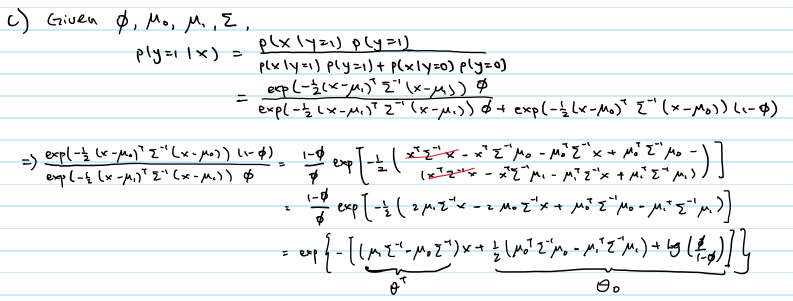 c) Given ϕ, μ₀, μ₁, Σ,
p(y=1 | x) = p(x | y=1) p(y=1) / p(x | y=1) p(y=1) + p(x | y=0) p(y=0)
= exp(-½(x-μ₁)ᵀ Σ⁻¹ (x-μ₁)) ϕ / exp(-½(x-μ₁)ᵀ Σ⁻¹ (x-μ₁)) ϕ + exp(-½(x-μ₀)ᵀ Σ⁻¹ (x-μ₀)) (1-ϕ)
=> exp(-½(x-μ₀)ᵀ Σ⁻¹ (x-μ₀)) (1-ϕ) / exp(-½(x-μ₁)ᵀ Σ⁻¹ (x-μ₁)) ϕ = 1-ϕ / ϕ exp[-½(xᵀΣ⁻¹x - xᵀΣ⁻¹μ₀ - μ₀ᵀΣ⁻¹x + μ₀ᵀΣ⁻¹μ₀ -
(xᵀΣ⁻¹x - xᵀΣ⁻¹μ₁ - μ₁ᵀΣ⁻¹x + μ₁ᵀΣ⁻¹μ₁))]
= 1-ϕ / ϕ exp[-½(2μ₁Σ⁻¹x - 2μ₀Σ⁻¹x + μ₀ᵀΣ⁻¹μ₀ - μ₁ᵀΣ⁻¹μ₁)]
= exp{-[(μ₁Σ⁻¹-μ₀Σ⁻¹)x + ½(μ₀ᵀΣ⁻¹μ₀ - μ₁ᵀΣ⁻¹μ₁) + log(ϕ / 1-ϕ)]}
θᵀ θ₀